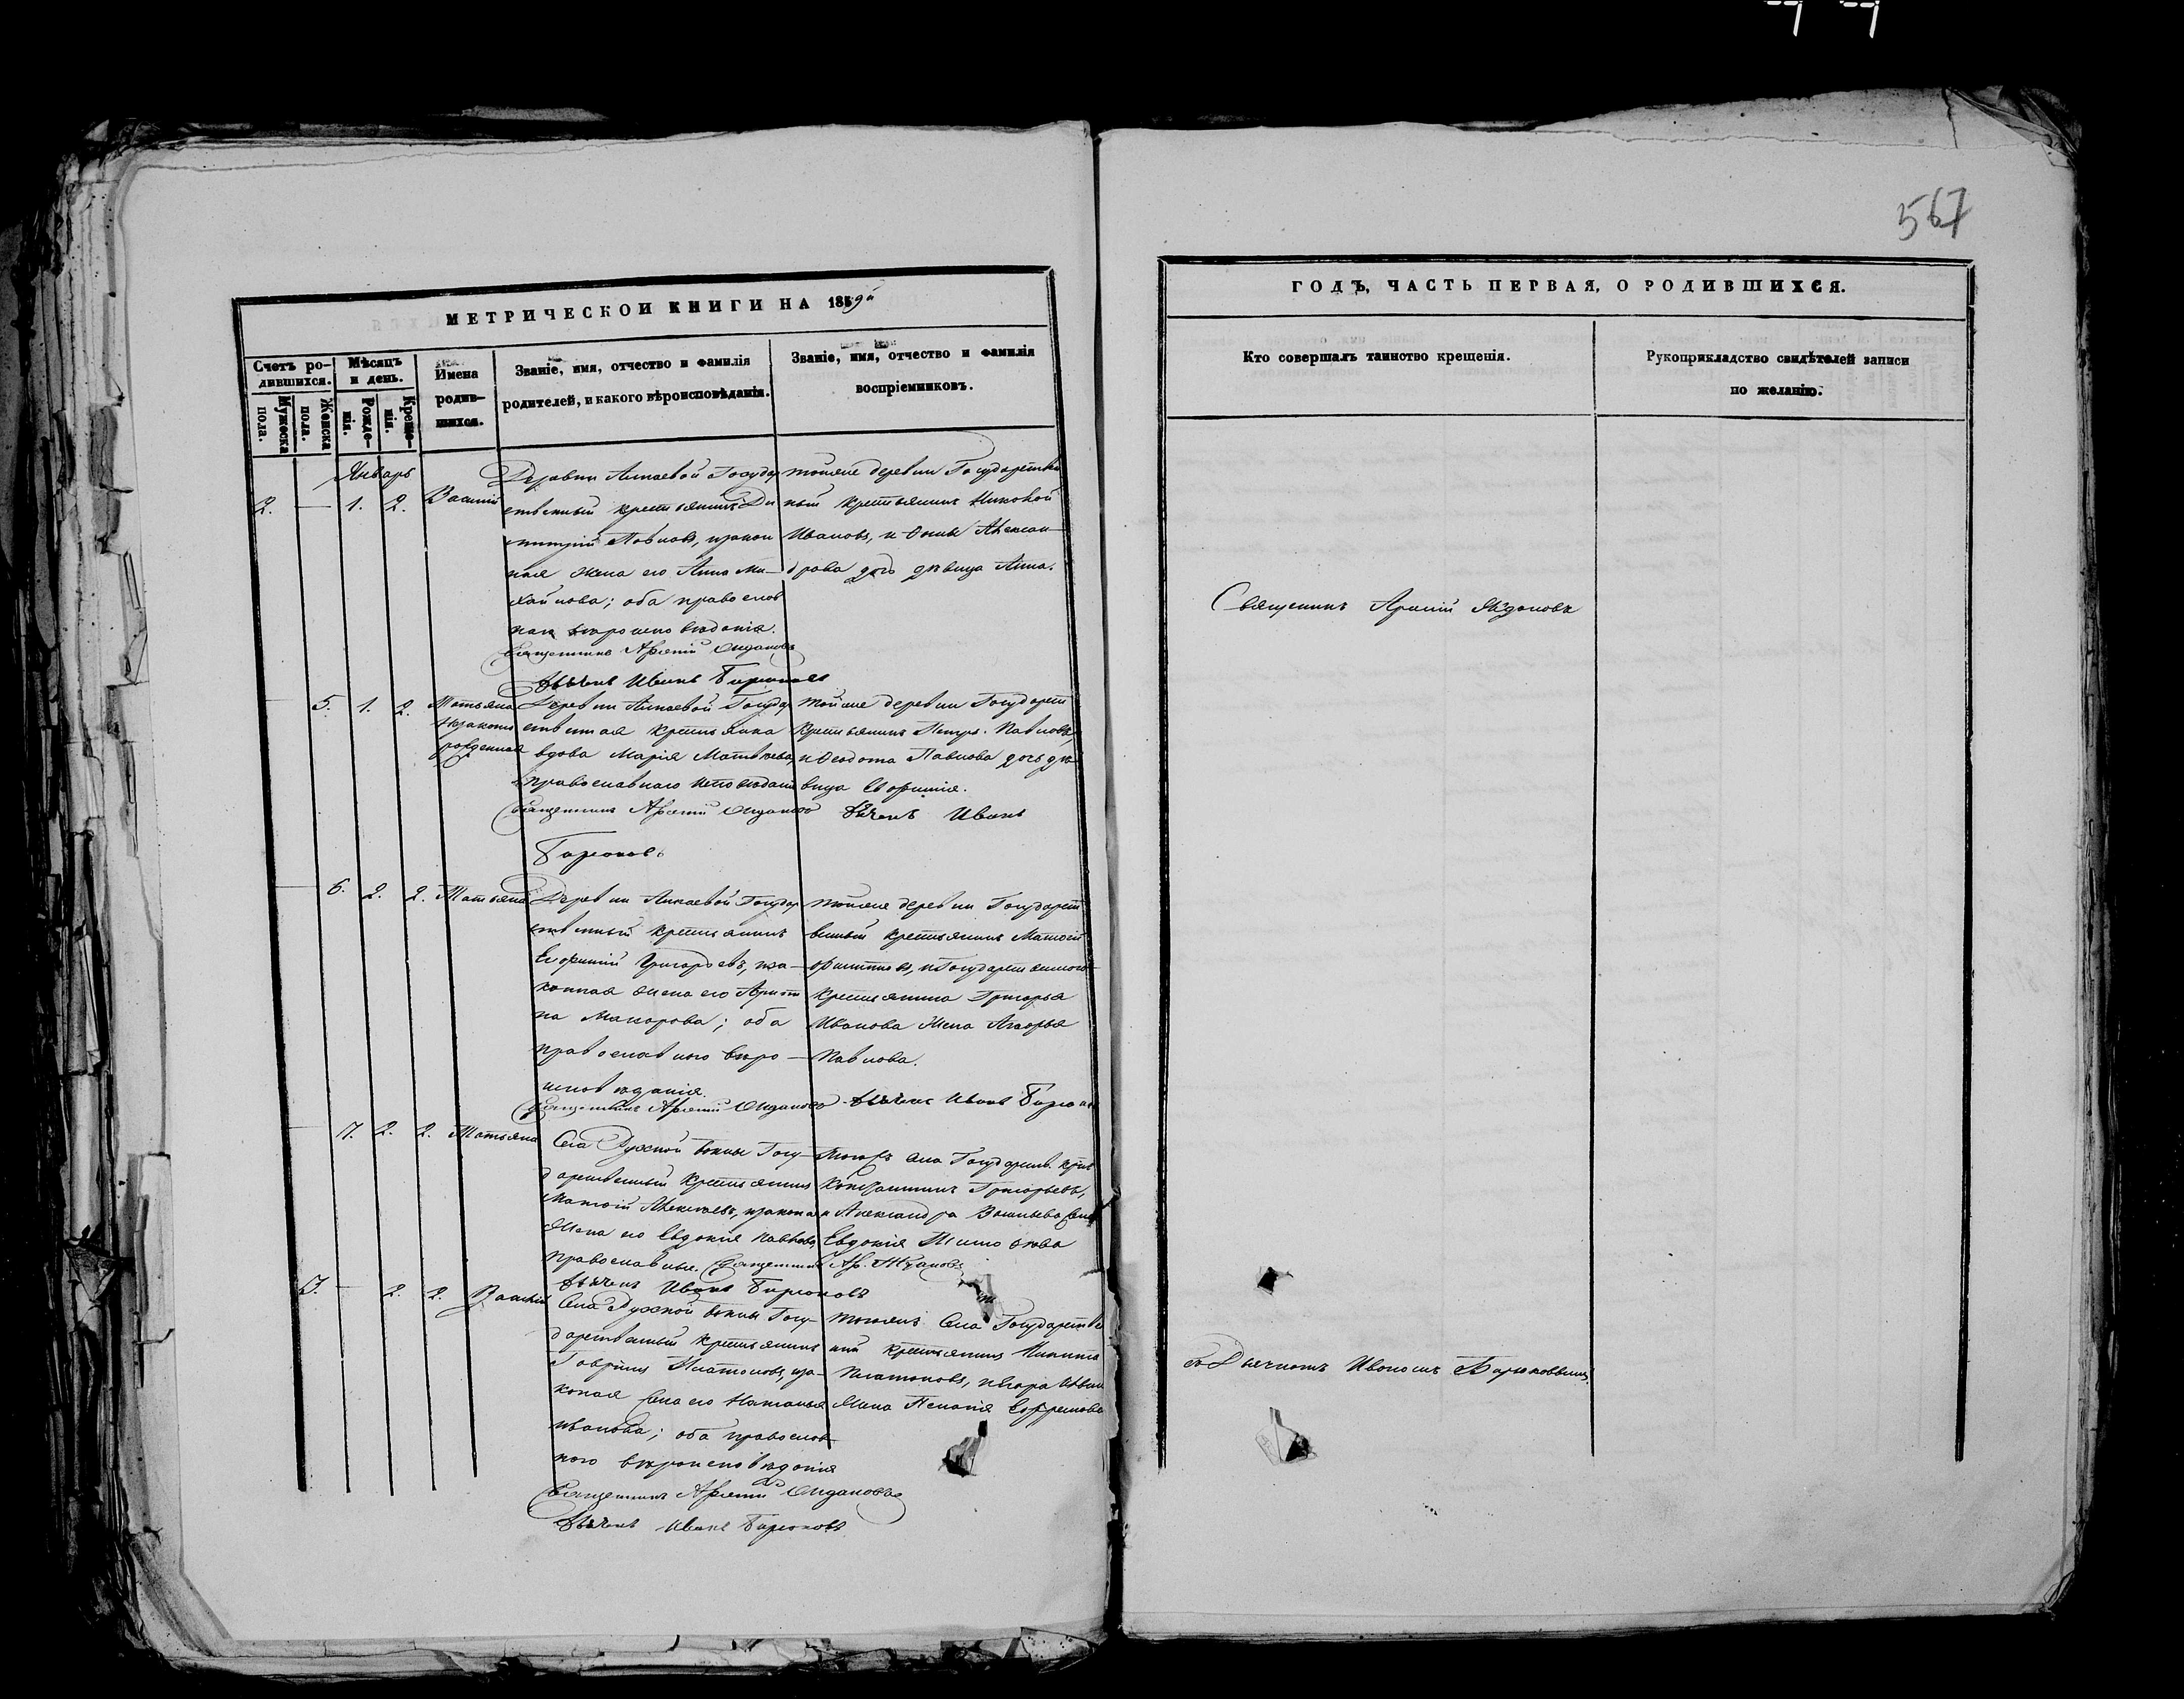 567
МЕТРИЧЕСКОЙ КНИГИ НА 1859й
ГОДЪ, ЧАСТЬ ПЕРВАЯ, О РОДИВШИХСЯ.
Счетъ ро-
дившихся.
Мужеска
пола.
Женска
пола.
Мѣсяцъ
и день.
Рожде-
нія.
Креще-
нія.
Имена
родив-
шихся.
Званіе, имя, отчество и фамилія
родителей, и какого вѣроисповѣданія.
Званіе, имя, отчество и фамилія
воспріемниковъ.
Кто совершалъ таинство крещенія.
Рукоприкладство свидѣтелей записи
по желанію.
Январь
2. — 1. 2. Василій
Деревни Государ
ственный крестьянинъ Ди
митрій Павловъ, и закон
ная жена его Анна Ми-
хайлова; оба православ
наго вѣроисповѣданія.
Священникъ Арсеній
Дьячекъ Иванъ Бирюковъ
тойже деревни Государствен
ный крестьянинъ
Ивановъ, и Алексан-
дрова дочь дѣвица Анна.
Священникъ Арсеній
— 5. 1. 2. Татьяна
незаконно
рожденная
Деревни Государ
ственная крестьянка
вдова Марія Матвѣева,
православнаго исповѣданія
Священникъ Арсеній
Дьячекъ Иванъ
Бирюковъ
тойже деревни Государст
крестьянинъ Петръ Павловъ,
и Ѳедота Павлова дочь дѣ
вица Евфимія.
— 6. 2. 2. Татьяна
Деревни Государ
ственный крестьянинъ
Евфимій Григорьевъ, и за-
конная жена его
на Макарова; оба
православнаго вѣро-
исповѣданія.
Священникъ Арсеній
Дьячекъ Иванъ Бирюков
тойже деревни Государст
венный крестьянинъ Матвѣй
и Государственнаго
крестьянина Григорья
Иванова жена Агафья
Павлова.
— 7. 2. 2. Татьяна
Села Госу-
дарственный крестьянинъ
Матвѣй Алексѣевъ, и законная
жена его Евдокія Павлова,
православные. Священникъ Ар.
Дьячекъ Иванъ Бирюковъ
Тогожъ села Государств. крес
Константинъ Григорьевъ,
и Александра Васильева жена
Евдокія Тимофѣева
3. — 2. 2. Василій
Села Госу-
дарственный крестьянинъ
Гавріилъ Платоновъ, и за-
конная жена его Наталья
Иванова; оба православ-
наго вѣроисповѣданія
Священникъ Арсеній
Дьячекъ Иванъ Бирюковъ
тогожъ села Государстве
ный крестьянинъ Никита
Платоновъ,
жена Пелагія Ефремова
съ Дьячкомъ Иваномъ Бирюковымъ.